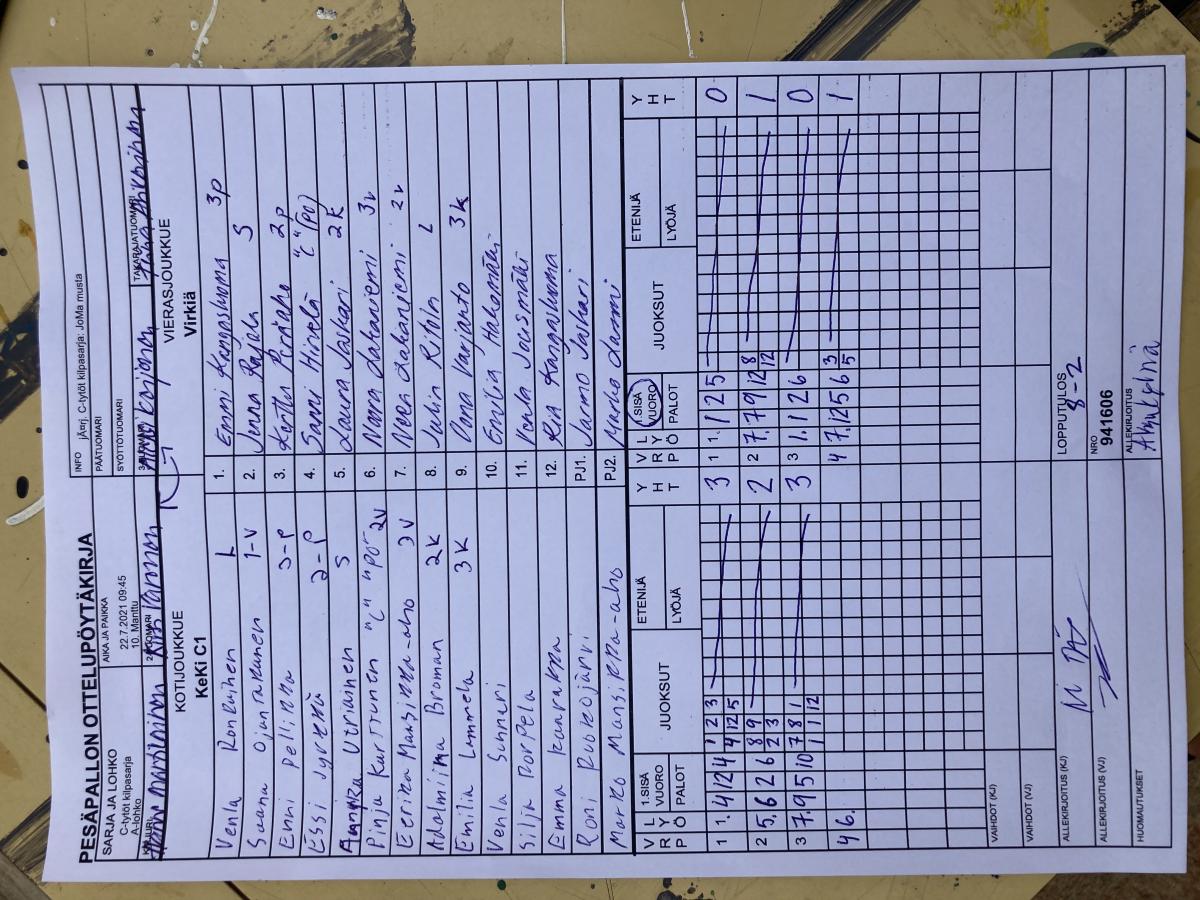 PESÄPALLON OTTELUPÖYTÄKIRJA
SARJA JA LOHKO
C-tytöt kilpasarja
A-lohko
AIKA JA PAIKKA
22.7.2021 09:45
10. Manttu
INFO jÄrj. C-tytöt kilpasarja: JoMa musta
PÄÄTUOMARI
SYÖTTÖTUOMARI
TAKARAJATUOMARI
KOTIJOUKKUE
KeKi C1
VIERASJOUKKUE
Virkiä
Venla Ronkainen L
Saana Ojantakanen 1-V
Enni Pellinka 3-P
Essi Jyrkkä 2-P
Annika Utriainen S
Pinja Karttunen "C" "PO" 2V
Eerika Mansikka-aho 3V
Adalmiina Broman 2K
Emilia Lammela 3K
Venla Sunnari
Silja Korpela
Emma Kaarakka
Roni Ruokojärvi
Marko Mansikka-aho
1. Emmi Kangasluoma 3p
2. Jenna Rajala S
3. Kerttu Perälaho 2p
4. Sanni Hirvelä "C" (PO)
5. Laura Jaskari 2k
6. Noora Latvaniemi 3v
7. Neea Latvaniemi 2v
8. Julia Ritola L
9. Oona Varjanto 3k
10. Emilia Hakomäki
11. Venla Jouismäki
12. Ria Kangasluoma
PJ1. Jarmo Jaskari
PJ2. Marko Lammi
V R P L Y Ö 1.SISÄ VUORO PALOT JUOKSUT ETENIJÄ LYÖJÄ Y H T
1 1. 4 12 4 1 2 3 4 12 5 3
2 5. 6 2 6 8 9 2 3 2
3 7. 9 5 10 7 8 1 1 1 12 3
4 6.
V R P L Y Ö 1.SISÄ VUORO PALOT JUOKSUT ETENIJÄ LYÖJÄ Y H T
1 1. 1 2 5 0
2 7. 7 9 12 8 12 1
3 1. 1 2 6 0
4 7. 12 5 6 3 5 1
VAIHDOT (KJ)
VAIHDOT (VJ)
ALLEKIRJOITUS (KJ)
ALLEKIRJOITUS (VJ)
HUOMAUTUKSET
LOPPUTULOS
8-2
NRO
941606
ALLEKIRJOITUS